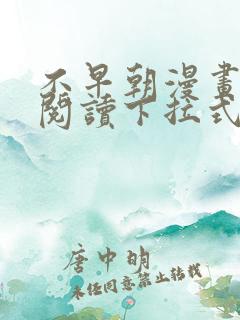 不早朝漫畫
閱讀下拉式
唐中明
未经同意禁止转载